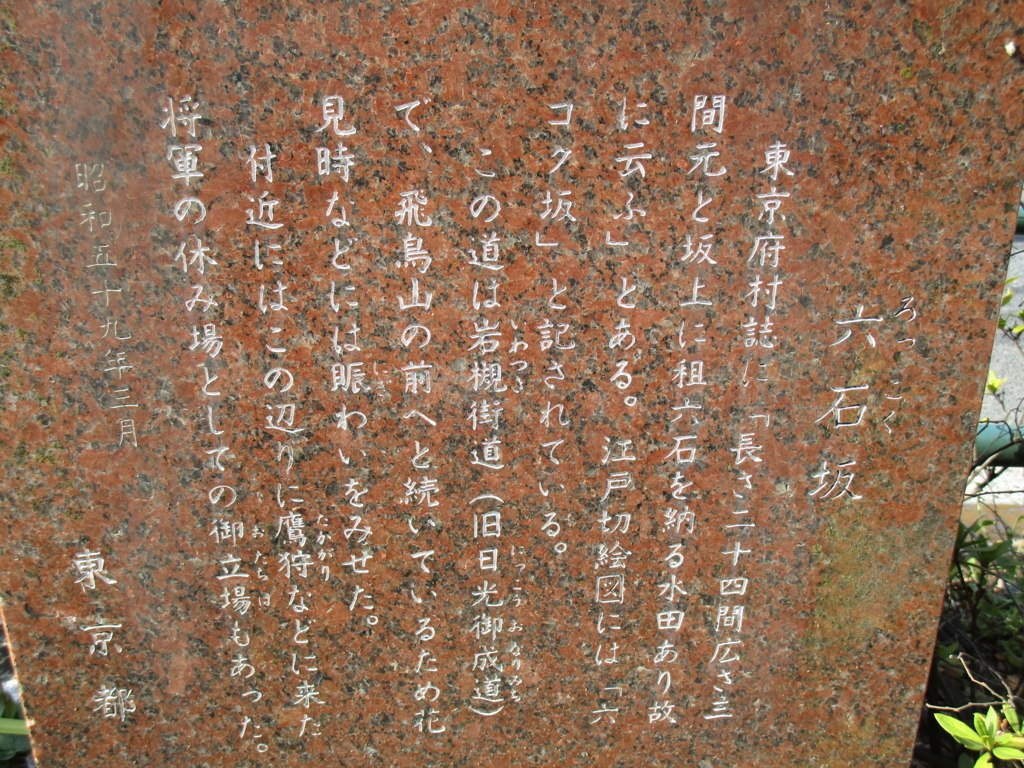 ろっこく
六石坂
東京府村誌に「長さ二十四間広さ三
間元と坂上に租六石を納る水田あり故
に云ふ」とある。江戸切絵図には「六
コク坂」と記されている。
いわつき にっこうおなりみち
この道は岩槻街道(旧日光御成道)
で、飛鳥山の前へと続いているため花
にぎ
見時などには賑わいをみせた。
たかがり
付近にはこの辺りに鷹狩などに来た
おたちば
将軍の休み場としての御立場もあった。
昭和五十九年三月
東京都